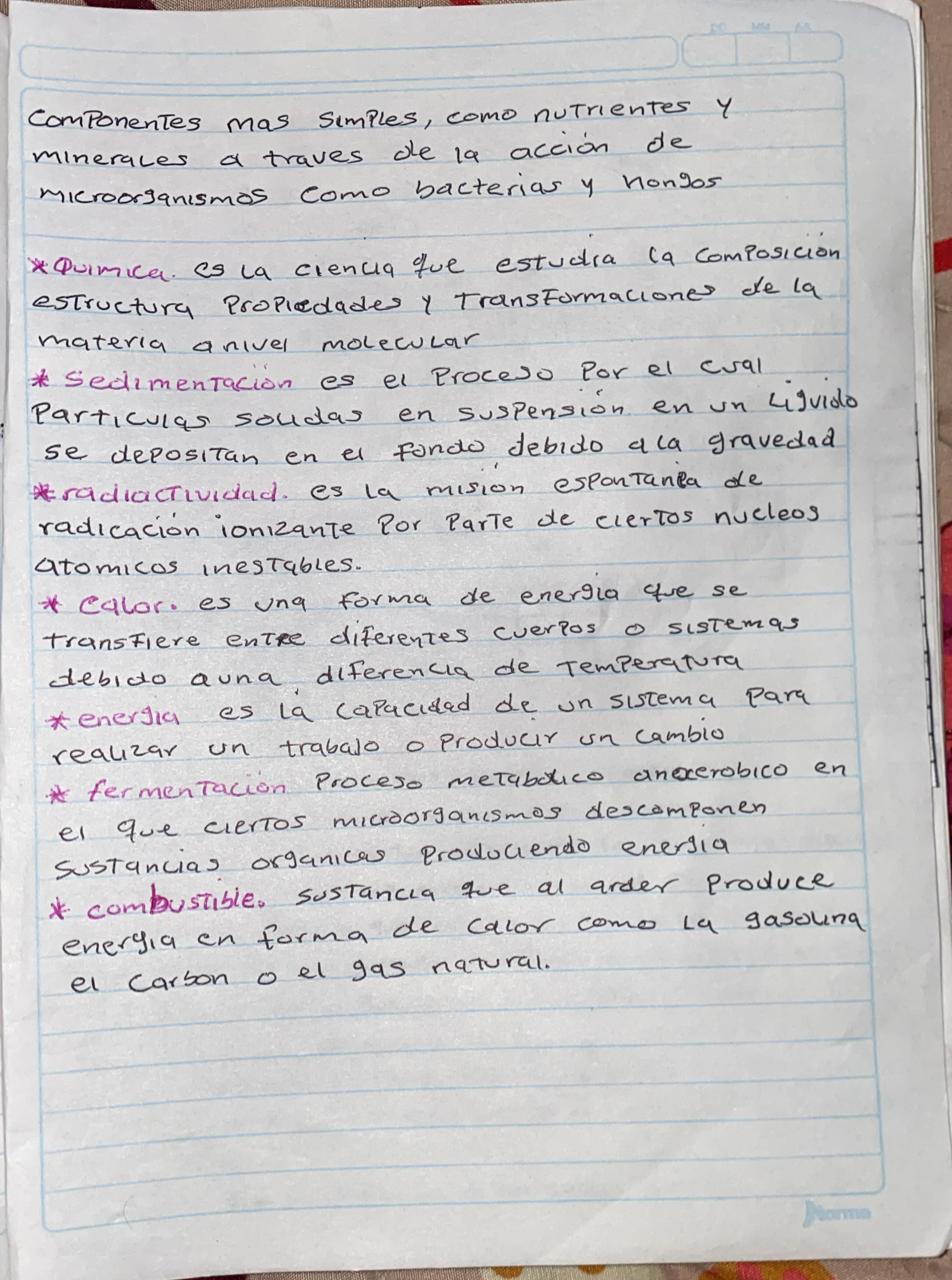 DD MM AA
componentes mas simples, como nutrientes y
minerales a traves de la acción de
microorganismos como bacterias y hongos
*Quimica. es la ciencia que estudia la composición
estructura Propiedades y transformaciones de la
materia a nivel molecular
* Sedimentación es el Proceso Por el cual
Particulas solidas en suspensión en un Liquido
se depositan en el fondo debido a la gravedad
*radiactividad. es la misión espontanea de
radicación ionizante Por Parte de ciertos nucleos
atomicos inestables.
* Calor. es una forma de energia que se
transfiere entre diferentes cuerpos o sistemas
debido a una diferencia de temperatura
* energia es la capacidad de un sistema Para
realizar un trabajo o Producir un cambio
* fermentación Proceso metabolico anaerobico en
el que ciertos microorganismos descomponen
sustancias organicas Produciendo energia
* combustible. sustancia que al arder Produce
energia en forma de calor como la gasolina
el carbon o el gas natural.
Norma